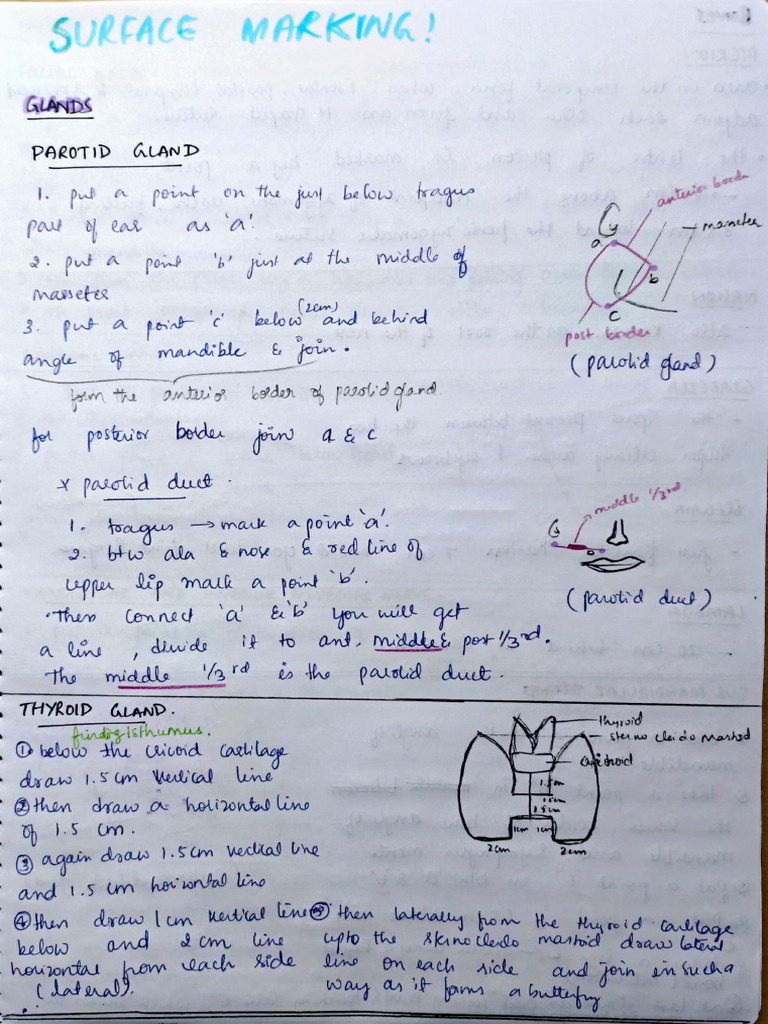 SURFACE MARKING!
GLANDS
PAROTID GLAND
1. put a point on the just below tragus
part of ear as 'a'.
2. put a point 'b' just at the middle of
masseter
3. put a point 'c' below (2cm) and behind
angle of mandible & join.
form the anterior border of parotid gland.
for posterior border join a & c
anterior border
masseter
a
b
c
post border
(parotid gland)
* parotid duct.
1. tragus → mark a point 'a'.
2. btw ala & nose & red line of
upper lip mark a point 'b'.
Then connect 'a' & 'b' you will get
a line, divide it to ant, middle & post 1/3rd.
The middle 1/3rd is the parotid duct.
middle 1/3rd
(parotid duct)
THYROID GLAND.
finding isthumus.
① below the cricoid cartilage
draw 1.5cm vertical line
② then draw a horizontal line
of 1.5 cm.
③ again draw 1.5cm vertical line
and 1.5 cm horizontal line
④ then draw 1cm vertical line
below and 2cm line
horizontal from each side
(lateral).
⑤ then laterally from the thyroid cartilage
upto the skinocledo mastoid draw lateral
line on each side and join in such a
way as it forms a butterfly
thyroid
sterno cleido mastoid
1.5cm
1.5cm
1.5cm
1cm 1cm
2cm 2cm